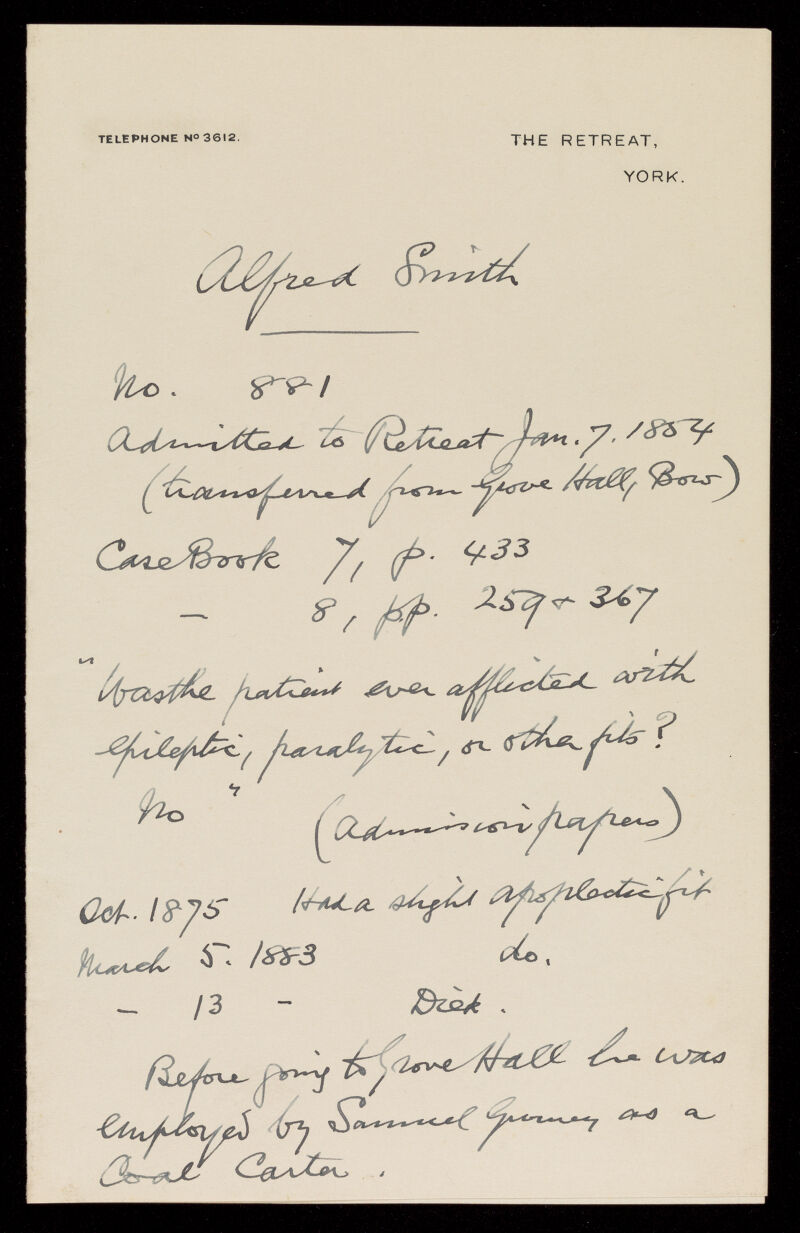 TELEPHONE Nº 3612.
THE RETREAT,
YORK.
Alfred Smith
No. 881
Admitted to Retreat Jan. 7. 1854
(transferred from Grove Hall, Bow)
Case Book 7, p. 433
— 8, pp. 259 & 367
"Was the patient ever afflicted with
epileptic, paralytic, or other fits?
No" (Admission papers)
Oct. 1875 Had a slight apoplectic fit
March 5. 1883 do.
— 13 — Died.
Before going to Grove Hall he was
employed by Samuel Gurney as a
Coal Carter.